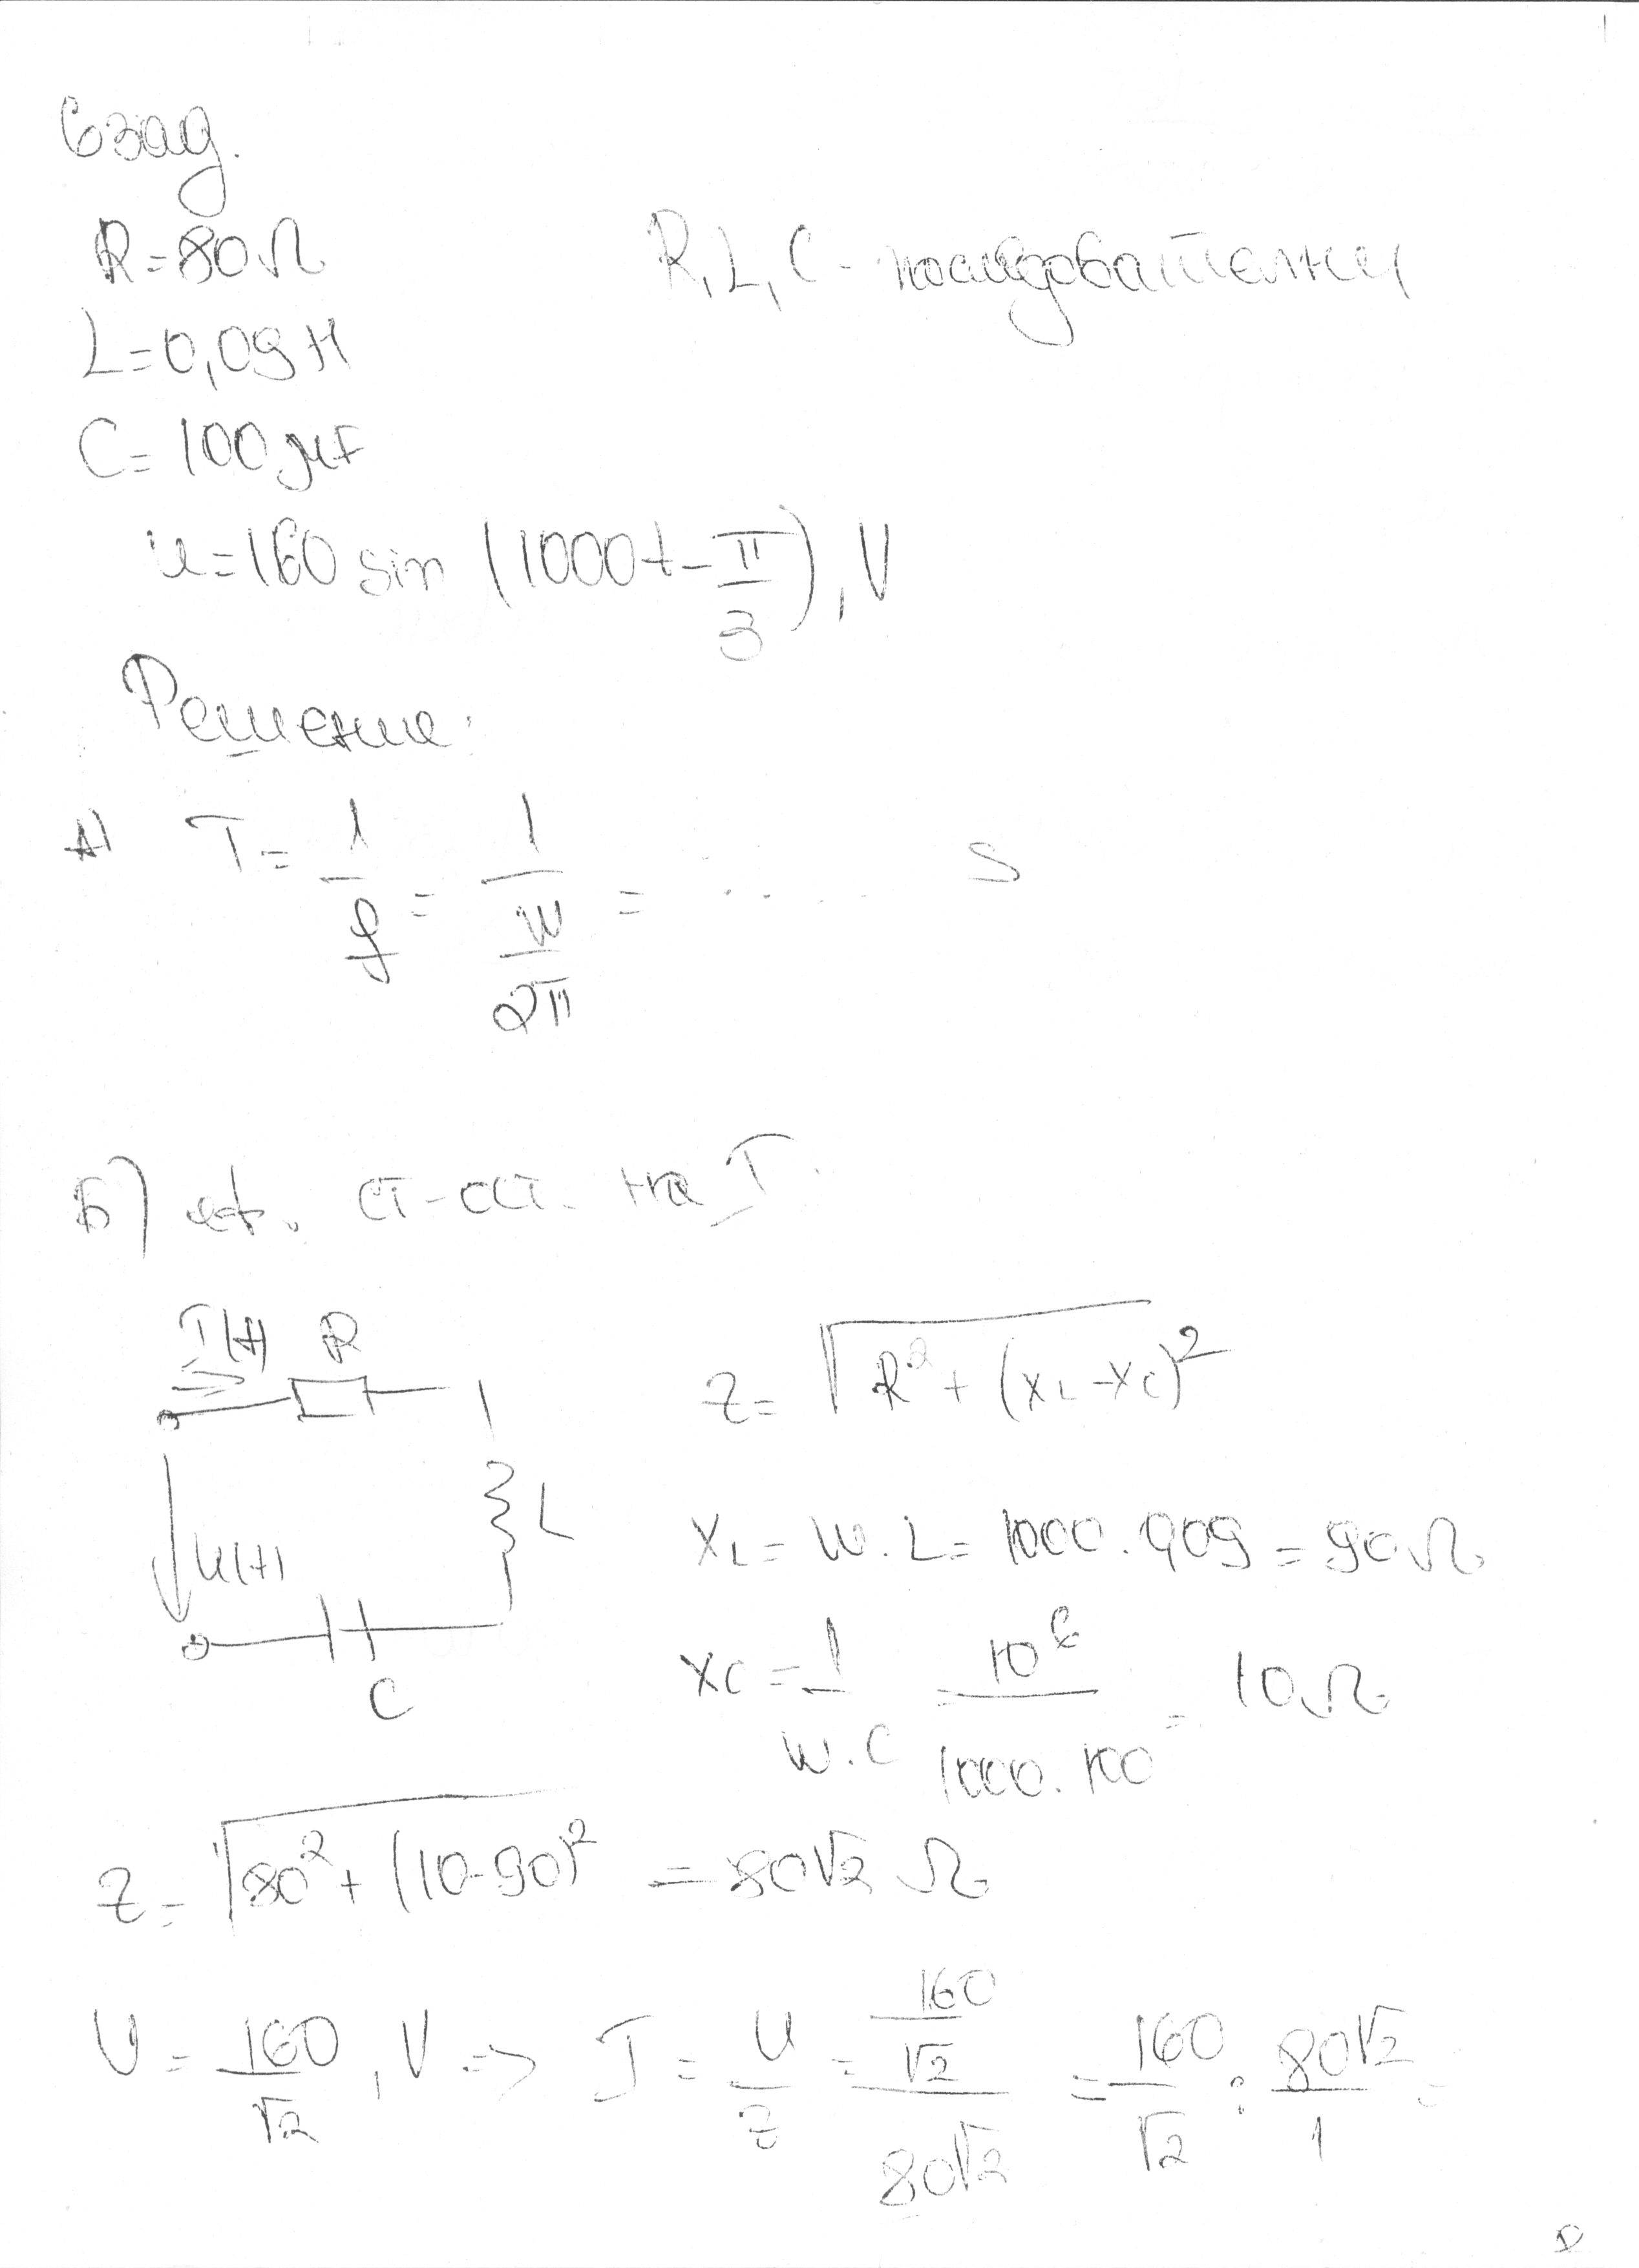 6 зад.
R=80Ω
R, L, C - последователни
L=0,09H
C=100μF
u=160 sin (1000t-π/3), V
Решение:
А) T=1/f=1/(ω/2π)= ........ S
Б) еф. ст-ст. на I.
I(t) R
Z=√(R²+(XL-XC)²)
L
XL=ω.L=1000.0,09=90Ω
u(t)
XC=1/ω.C=10⁶/1000.100=10Ω
C
Z=√(80²+(10-90)²)=80√2 Ω
U=160/√2, V => I=U/Z=(160/√2)/(80√2)=160/√2:80√2/1=